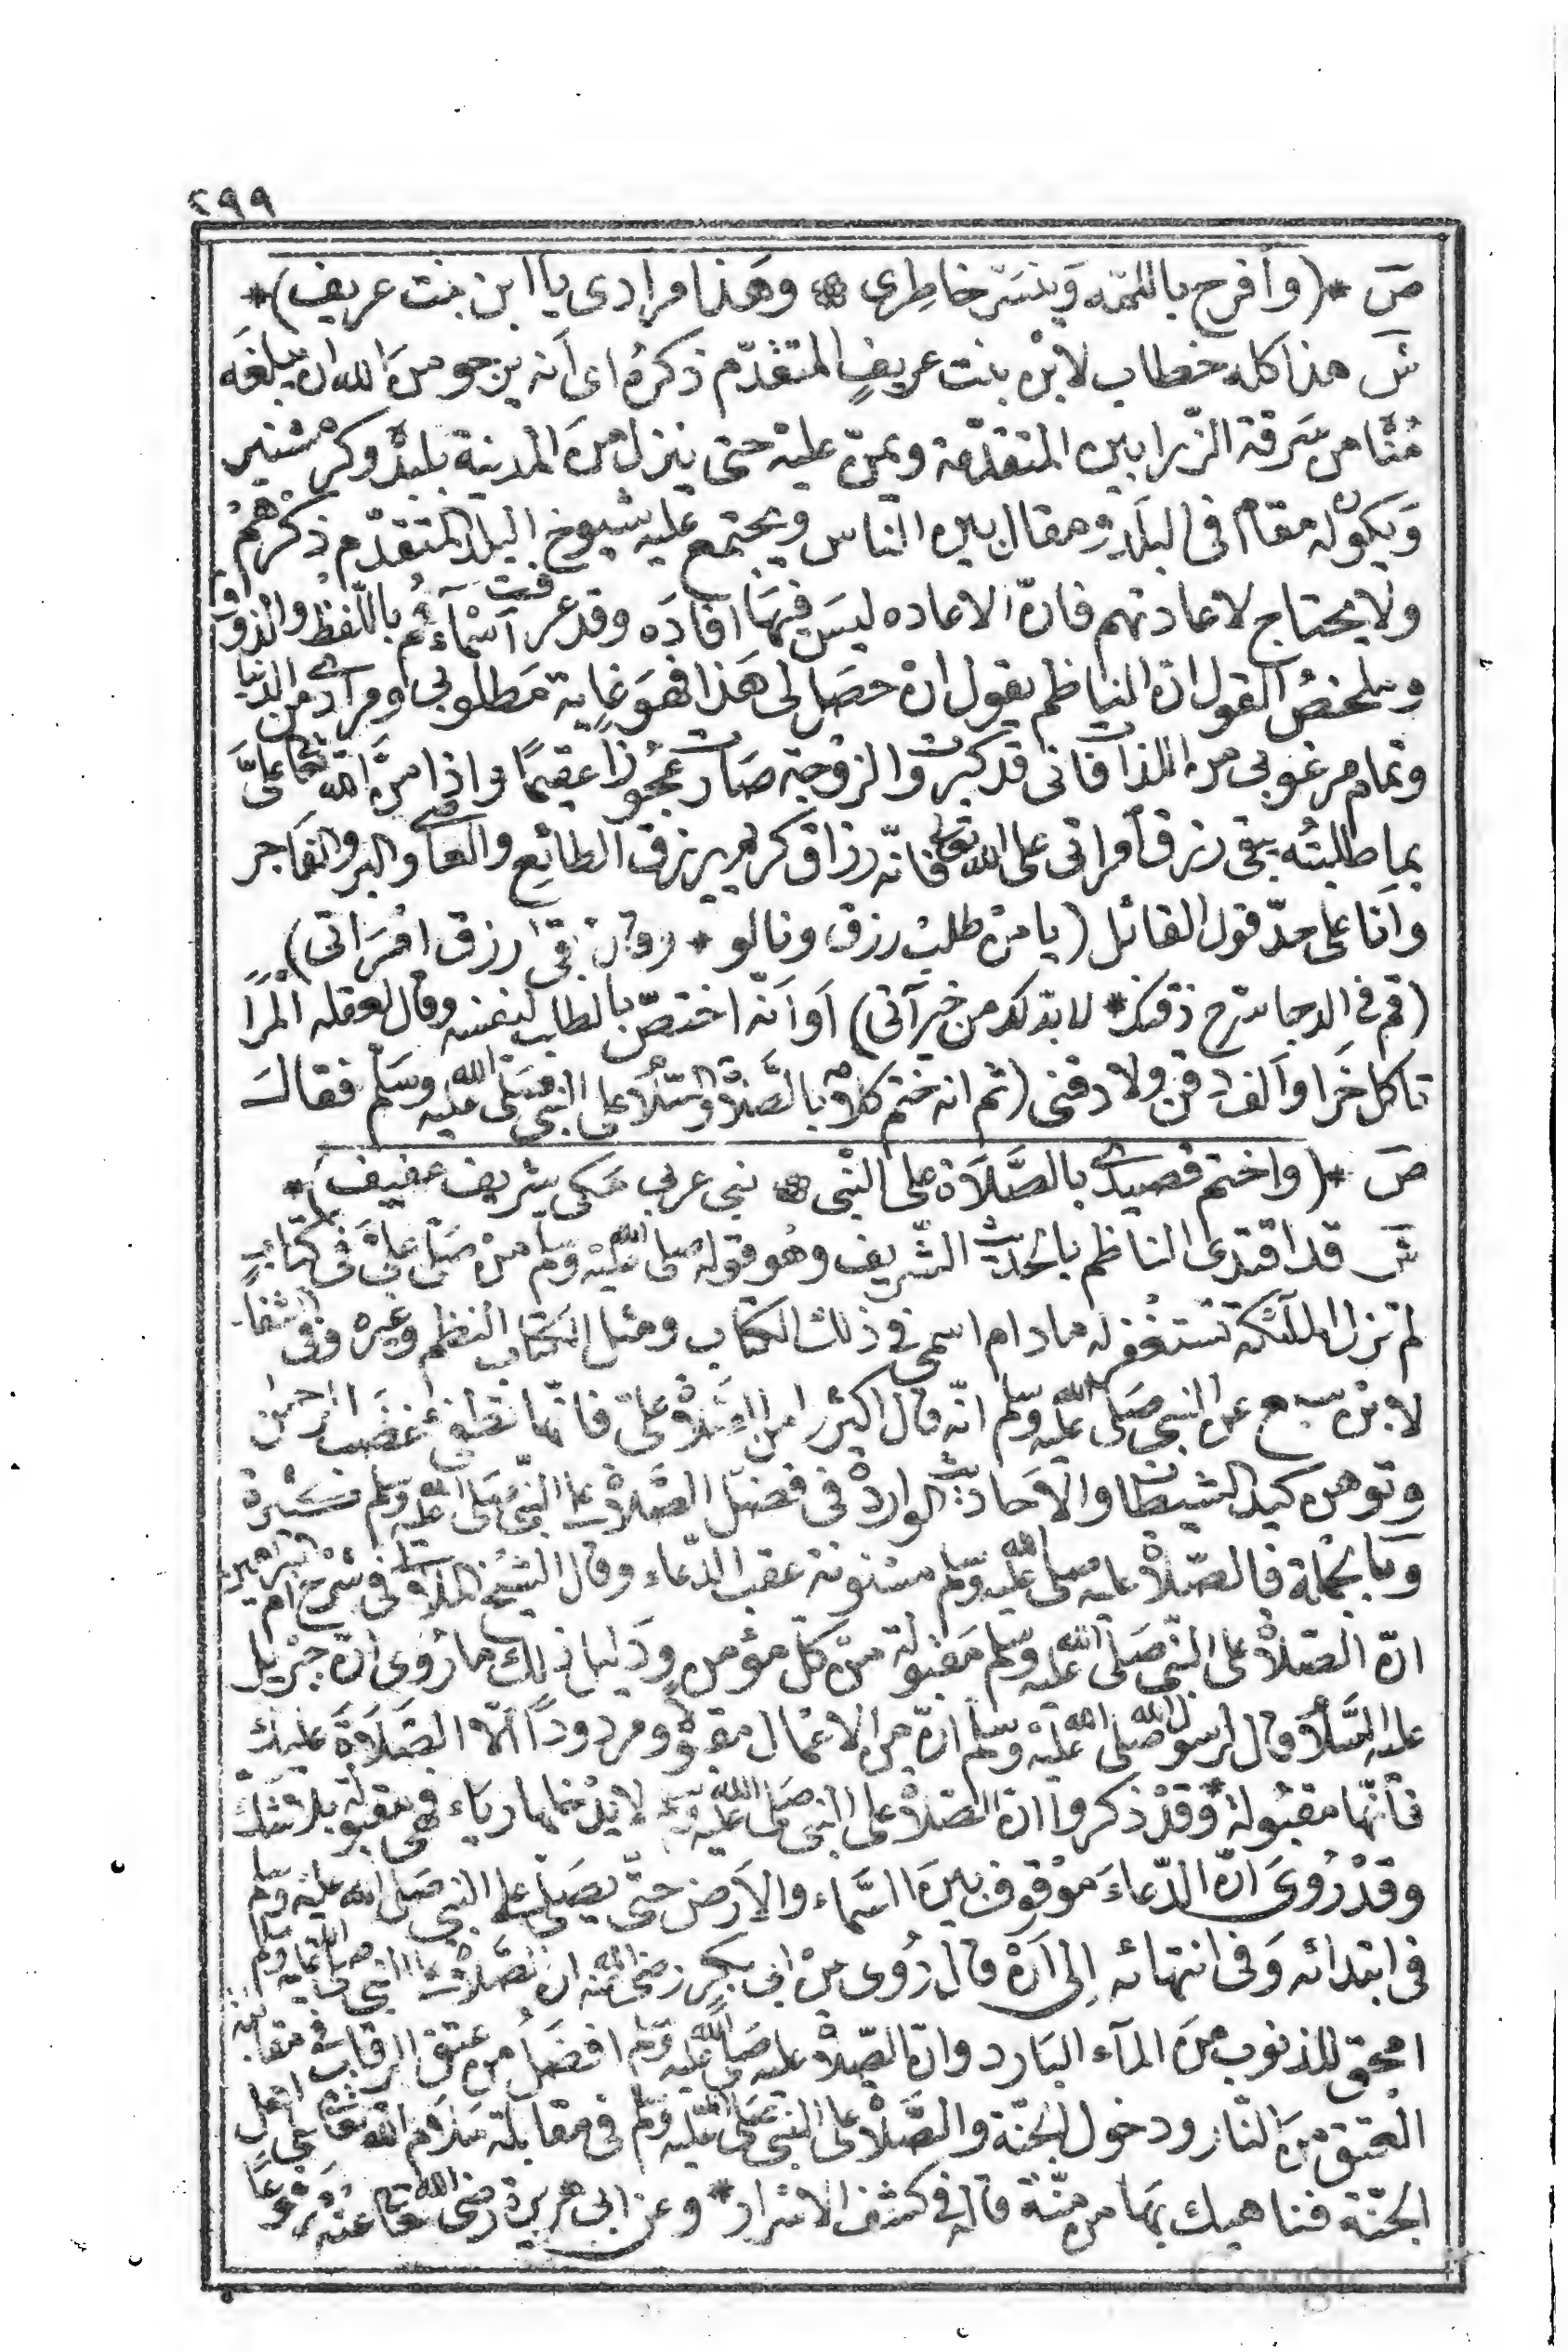 ٢٩٩
ص * (وافرح باللمه وينسر خاطري ۞ وهذا مرادي يا ابن بنت عريف) *
ش هذا كله خطاب لابن بنت عريف المتقدم ذكره اى أنه يرجو من الله ان يبلغه
من سرقة الزرابين المتقدمة ويمن عليه حتى ينزل من المدينة بلبدة وكر مشنير
ويكون له مقام فى البلد ومقال بين الناس ويجتمع عليه شيوخ البلد المتقدم ذكرهم
ولا يحتاج لاعادتهم فان الاعاده ليس فيها افاده وقد عرفت أسماءهم باللفظ والذوق
وملخص القول ان الناظم يقول ان حصل لى هذا فهو غاية مطلوبى ومرادى من الدنيا
وتمام مرغوبى من اللذات فانى قد كبرت والزوجة صارت عجوزا عقيما واذا من الله تعالى علىّ
بما طلبته يبقى رزق امراتى على الله تعالى فانه رزاق كريم يرزق الطائع والعاصى والبر والفاجر
وانا على حد قول القائل (يا من طلب رزق ونالو * بقى رزق امراتى)
(قم فى الدجا سرح ذقنك * لابد لك من خرآتى) أو أنه اختص بالطلب لنفسه وقال لعقله المرا
تاكل خرا وألف دقن ولا دقنى (ثم انه ختم كلامه بالصلاة والسلام على النبى صلى الله عليه وسلم فقال
ص * (واختم قصيدى بالصلاة على النبى ۞ نبى عربى مكى شريف عفيف) *
ش قد اقتدى الناظم بالحديث الشريف وهو قوله صلى الله عليه وسلم من صلى علىّ فى كتاب
لم تزل الملئكة تستغفر له مادام اسمى فى ذلك الكتاب ومثل الكتاب النظم وغيره وفى الشفا
لابن سبع عن النبى صلى الله عليه وسلم انه قال اكثروا من الصلاة علىّ فانها تطفئ غضب الرحمن
وتوهن كيد الشيطان والاحاديث الواردة فى فضل الصلاة على النبى صلى الله عليه وسلم كثيرة
وبالجملة فالصلاة عليه صلى الله عليه وسلم مسنونة عقب الدعاء وقال الشيخ فى شرح ام البراهين
ان الصلاة على النبى صلى الله عليه وسلم مقبولة من كل مؤمن ودليل ذلك ما روى ان جبريل
عليه السلام قال لرسول الله صلى الله عليه وسلم ان من الاعمال مقبولا ومردودا الا الصلاة عليك
فانها مقبولة * وقد ذكروا ان الصلاة على النبى صلى الله عليه وسلم لا يدخلها رياء فهى مقبولة بلا شك
وقد روى ان الدعاء موقوف بين السماء والارض حتى يصلى على النبى صلى الله عليه وسلم
فى ابتدائه وفى انتهائه إلى ان قال روى عن ابى بكر رضى الله عنه ان الصلاة على النبى صلى الله عليه وسلم
امحق للذنوب من المآء البارد وان الصلاة عليه صلى الله عليه وسلم افضل من عتق الرقاب فى مقابلة
العتق من النار ودخول الجنة والصلاة على النبى صلى الله عليه وسلم فى مقابلة سلام الله تعالى على اهل
الجنة فناهيك بها من منة قاله فى كشف الاسرار * وعن ابى هريرة رضى الله تعالى عنه مرفوعا